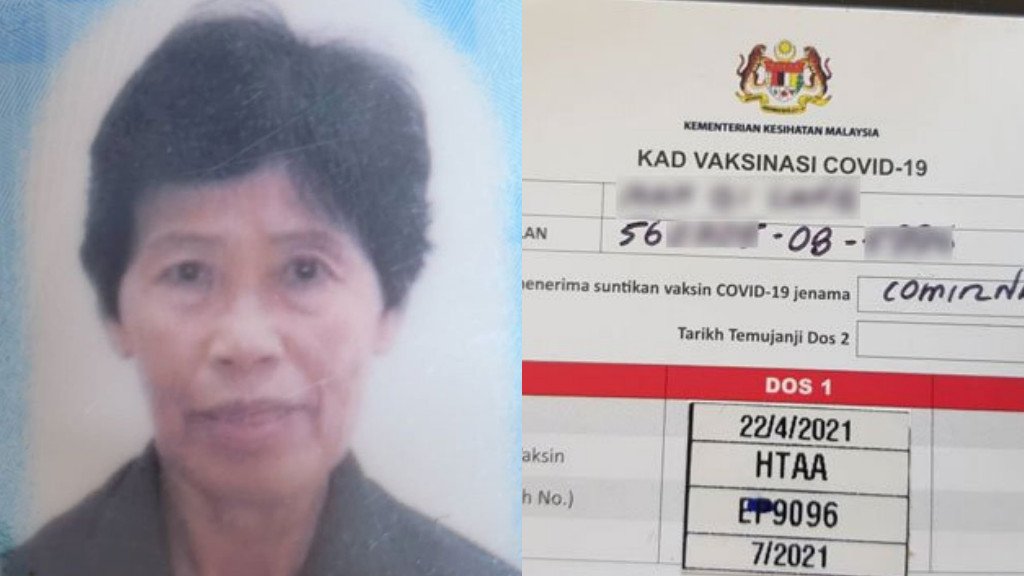 KEMENTERIAN KESIHATAN MALAYSIA
KAD VAKSINASI COVID-19
AN
56 -08-
enerima suntikan vaksin COVID-19 jenama
Tarikh Temujanji Dos 2
DOS 1
22/4/2021
aksin
HTAA
h No.)
EP9096
7/2021